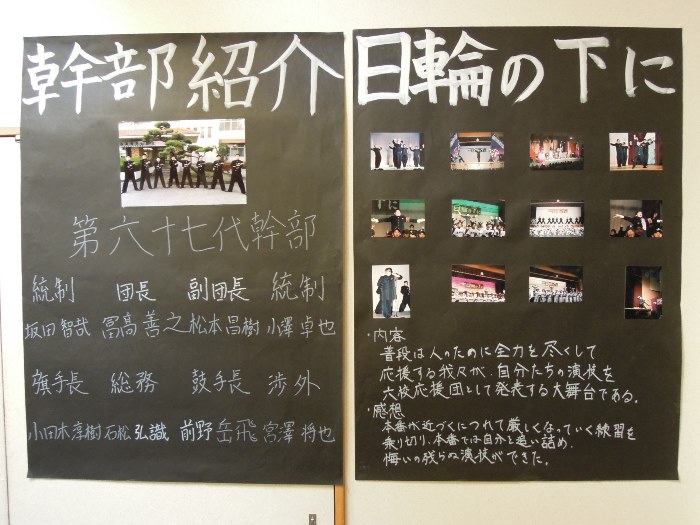 幹部紹介
第六十七代幹部
統制 団長 副団長 統制
坂田智哉 冨髙善之 松本昌樹 小澤卓也
旗手長 総務 鼓手長 渉外
小田木淳樹 石松弘識 前野岳飛 宮澤将也
日輪の下に
・内容
普段は人のために全力を尽くして
応援する我々が、自分たちの演技を
大校応援団として発表する大舞台である。
・感想
本番が近づくにつれて厳しくなっていく練習を
乗り切り、本番では自分を追い詰め、
悔いの残らぬ演技ができた。